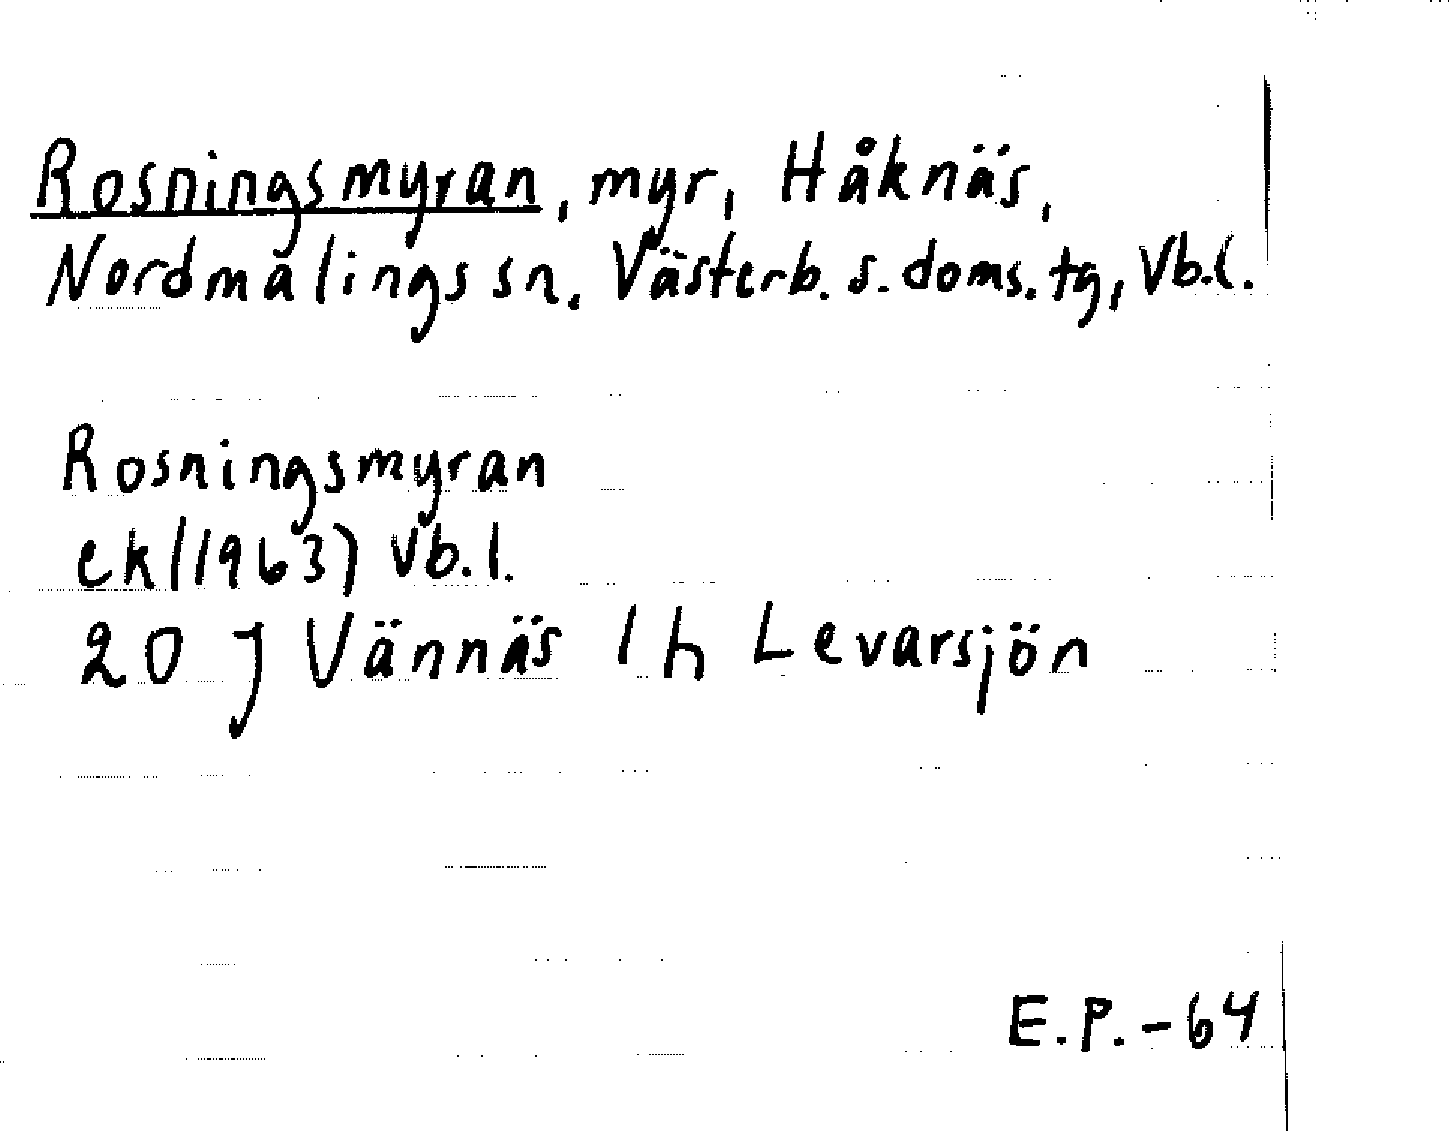 Rosningsmyran, myr, Håknäs,
Nordmalings sn. Västerb. s. doms. tg, Vb.l.
Rosningsmyran
ek (1963) Vb.l.
20 J Vännäs 1 h Levarsjön
E.P. - 64